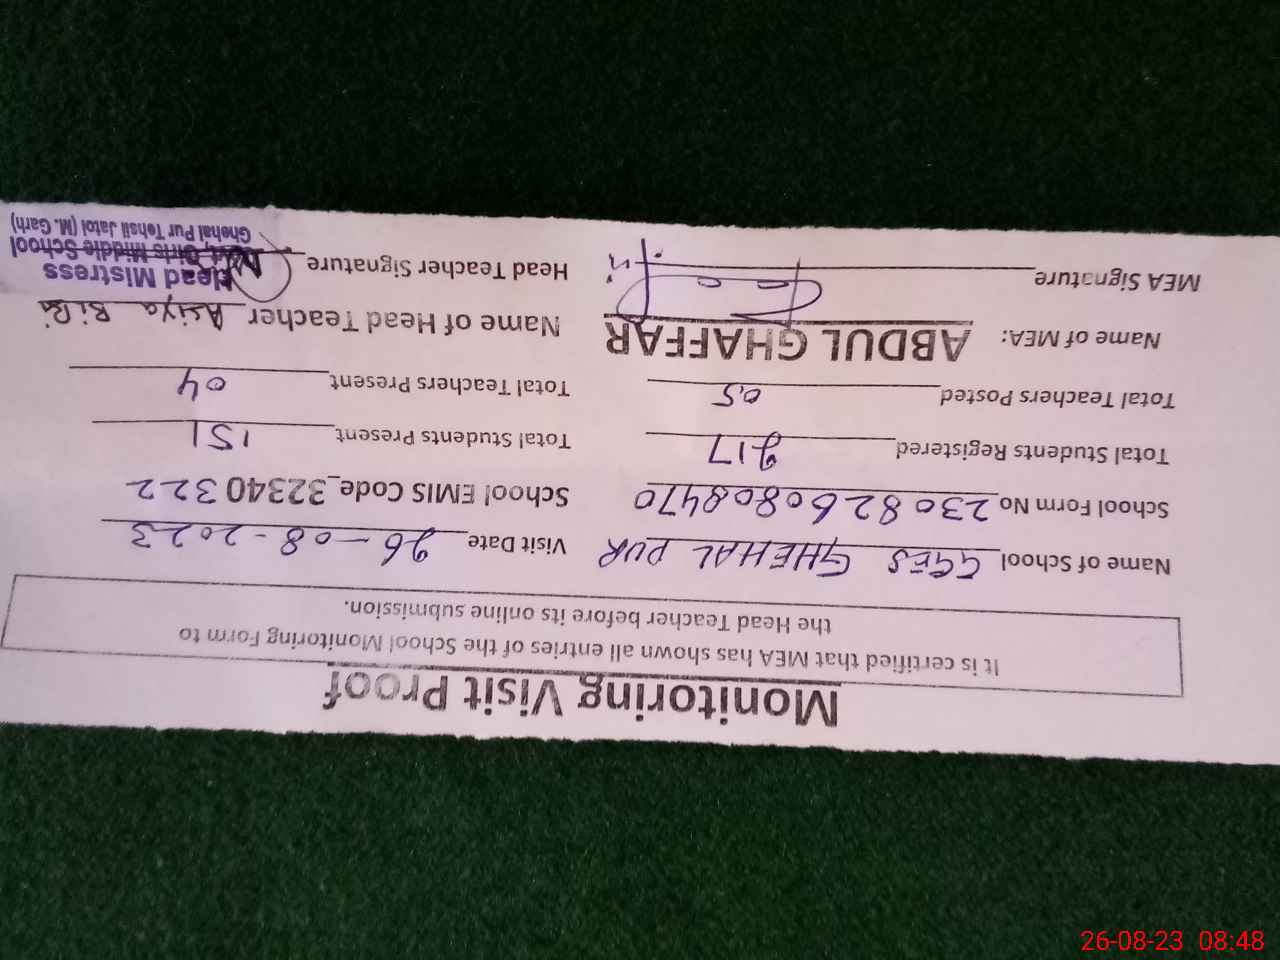 Monitoring Visit Proof
It is certified that MEA has shown all entries of the School Monitoring Form to
the Head Teacher before its online submission.
Name of School GGES GHEHAL PUR Visit Date 26-08-2023
School Form No 2308260808470 School EMIS Code 32340322
Total Students Registered 217 Total Students Present 151
Total Teachers Posted 05 Total Teachers Present 04
Name of MEA: ABDUL GHAFFAR Name of Head Teacher Asiya BiBi
MEA Signature Head Teacher Signature
Head Mistress
Girls Middle School
Ghehal Pur Tehsil Jatoi (M. Garh)
26-08-23 08:48